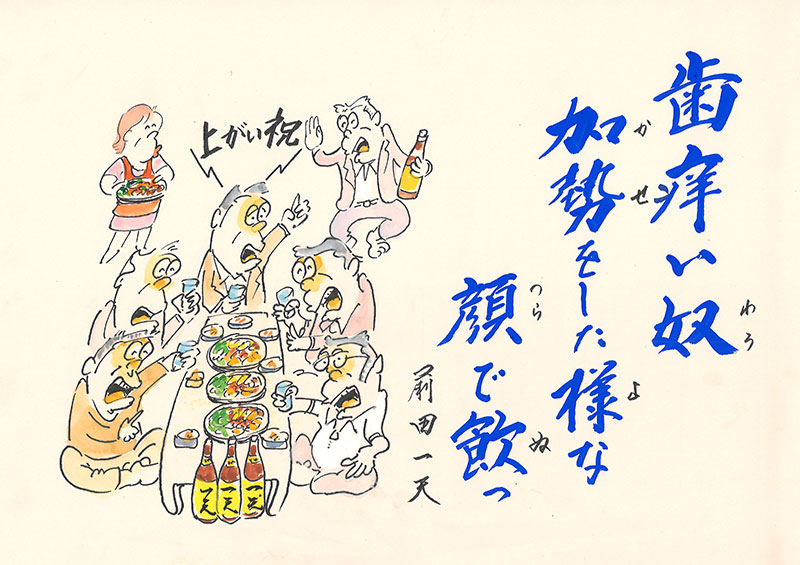 歯痒い奴
わろ
加勢をした様な
かせ
よ
顔で飲っ
つら
ぬ
前田一天
上がい祝
一天
一天
一天